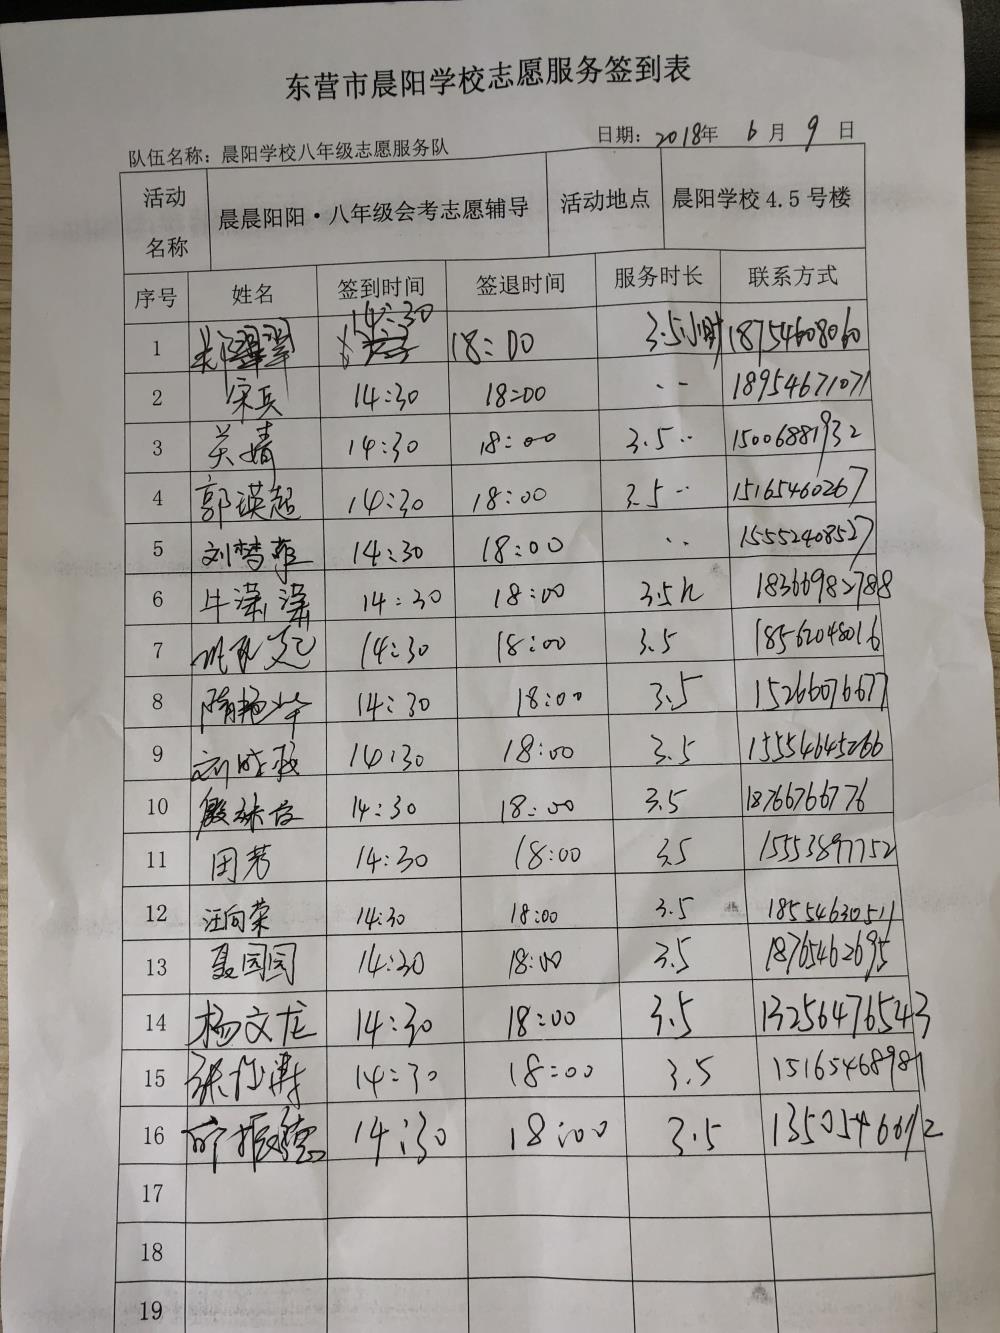 东营市晨阳学校志愿服务签到表
队伍名称：晨阳学校八年级志愿服务队 日期：2018年 6月 9日
活动名称 晨晨阳阳·八年级会考志愿辅导 活动地点 晨阳学校4.5号楼
序号 姓名 签到时间 签退时间 服务时长 联系方式
1 14:30 18:00 3.5小时 18754608060
2 宋兵 14:30 18:00 ·· 18954671071
3 关婧 14:30 18:00 3.5 ·· 15006881932
4 郭瑛超 14:30 18:00 3.5 ·· 15165460267
5 刘梦菲 14:30 18:00 ·· 15552408527
6 牛潇潇 14:30 18:00 3.5h 18366982788
7 14:30 18:00 3.5 18562048016
8 隋艳华 14:30 18:00 3.5 15266076677
9 14:30 18:00 3.5 15554645266
10 14:30 18:00 3.5 18766766776
11 田芳 14:30 18:00 3.5 15553897752
12 汪向荣 14:30 18:00 3.5 18554630511
13 聂园园 14:30 18:00 3.5 18765462695
14 杨文龙 14:30 18:00 3.5 13256476543
15 14:30 18:00 3.5 15165468981
16 14:30 18:00 3.5
17
18
19